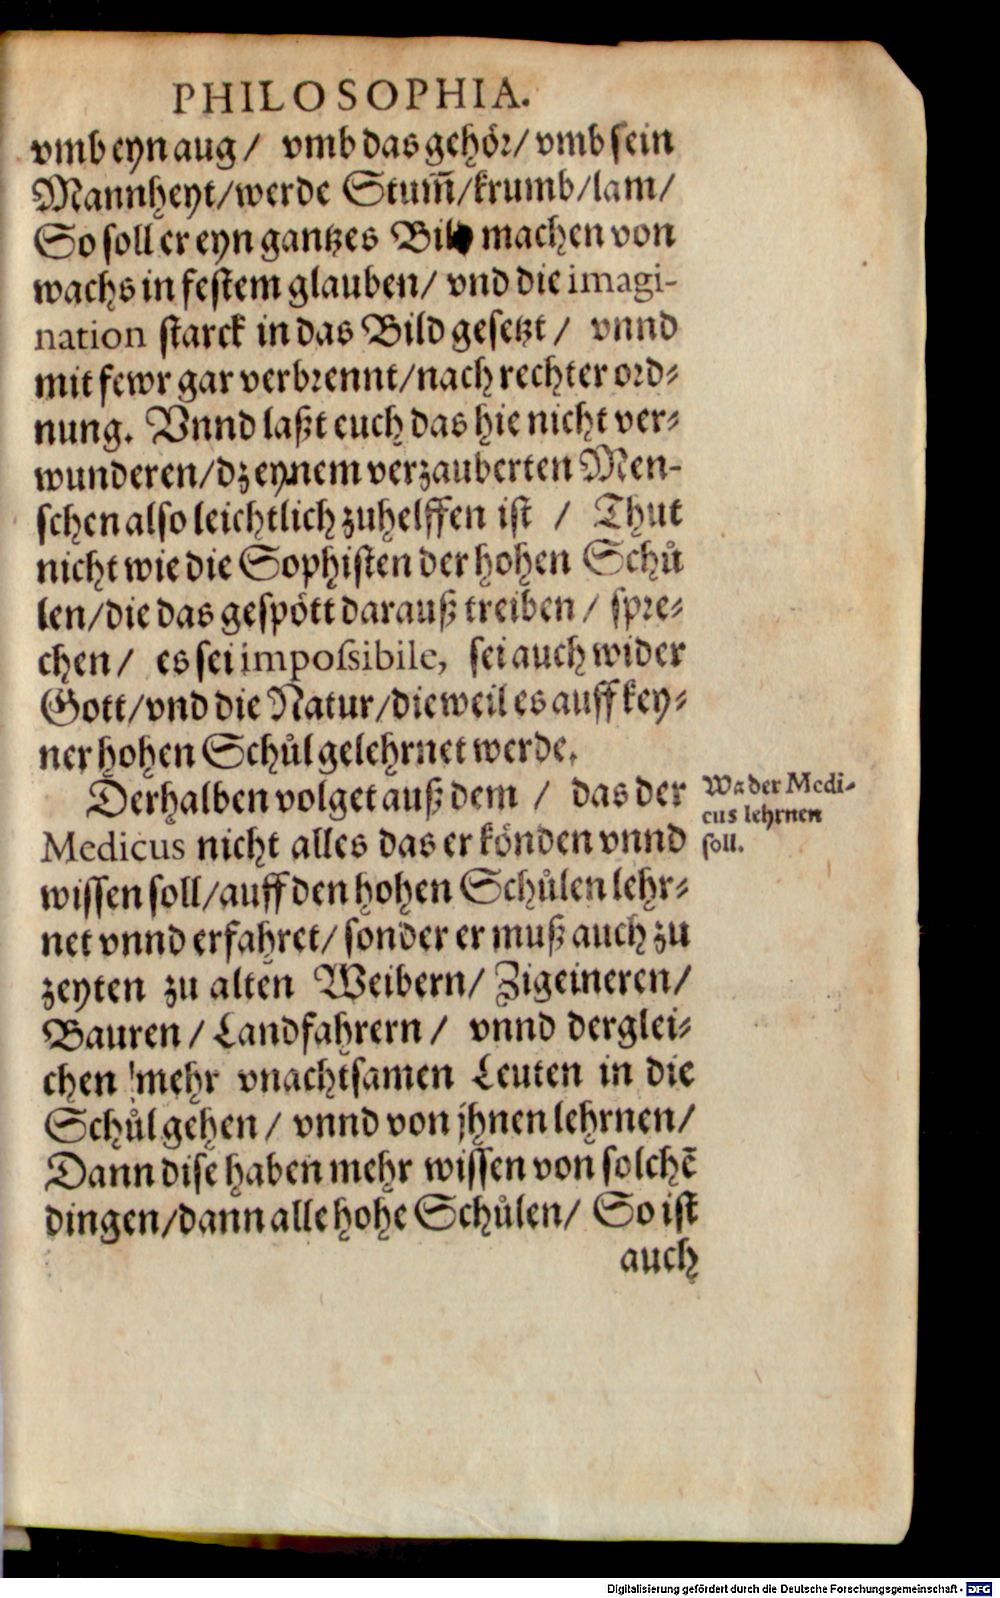 PHILOSOPHIA.
vmb eyn aug / vmb das gehör / vmb sein
Mannheyt/werde Stum̃/krumb/lam/
So soll er eyn gantzes Bild machen von
wachs in festem glauben/ vnd die imagi-
nation starck in das Bild gesetzt / vnnd
mit fewr gar verbrennt/nach rechter ord-
nung. Vnnd laßt euch das hie nicht ver-
wunderen/dz eynem verzauberten Men-
schen also leichtlich zuhelffen ist / Thut
nicht wie die Sophisten der hohen Schů
len/die das gespött darauß treiben / spre-
chen / es sei impossibile, sei auch wider
Gott/vnd die Natur/dieweil es auff key-
ner hohen Schůl gelehrnet werde.
Derhalben volget auß dem / das der
Medicus nicht alles das er könden vnnd
wissen soll/auff den hohen Schůlen lehr-
net vnnd erfahret/ sonder er muß auch zu
zeyten zu alten Weibern/ Zigeineren/
Bauren / Landfahrern / vnnd derglei-
chen mehr vnachtsamen Leuten in die
Schůl gehen / vnnd von jhnen lehrnen/
Dann dise haben mehr wissen von solchẽ
dingen/dann alle hohe Schůlen/ So ist
auch
Wa der Medi-
cus lehrnen
soll.
Digitalisierung gefördert durch die Deutsche Forschungsgemeinschaft - DFG